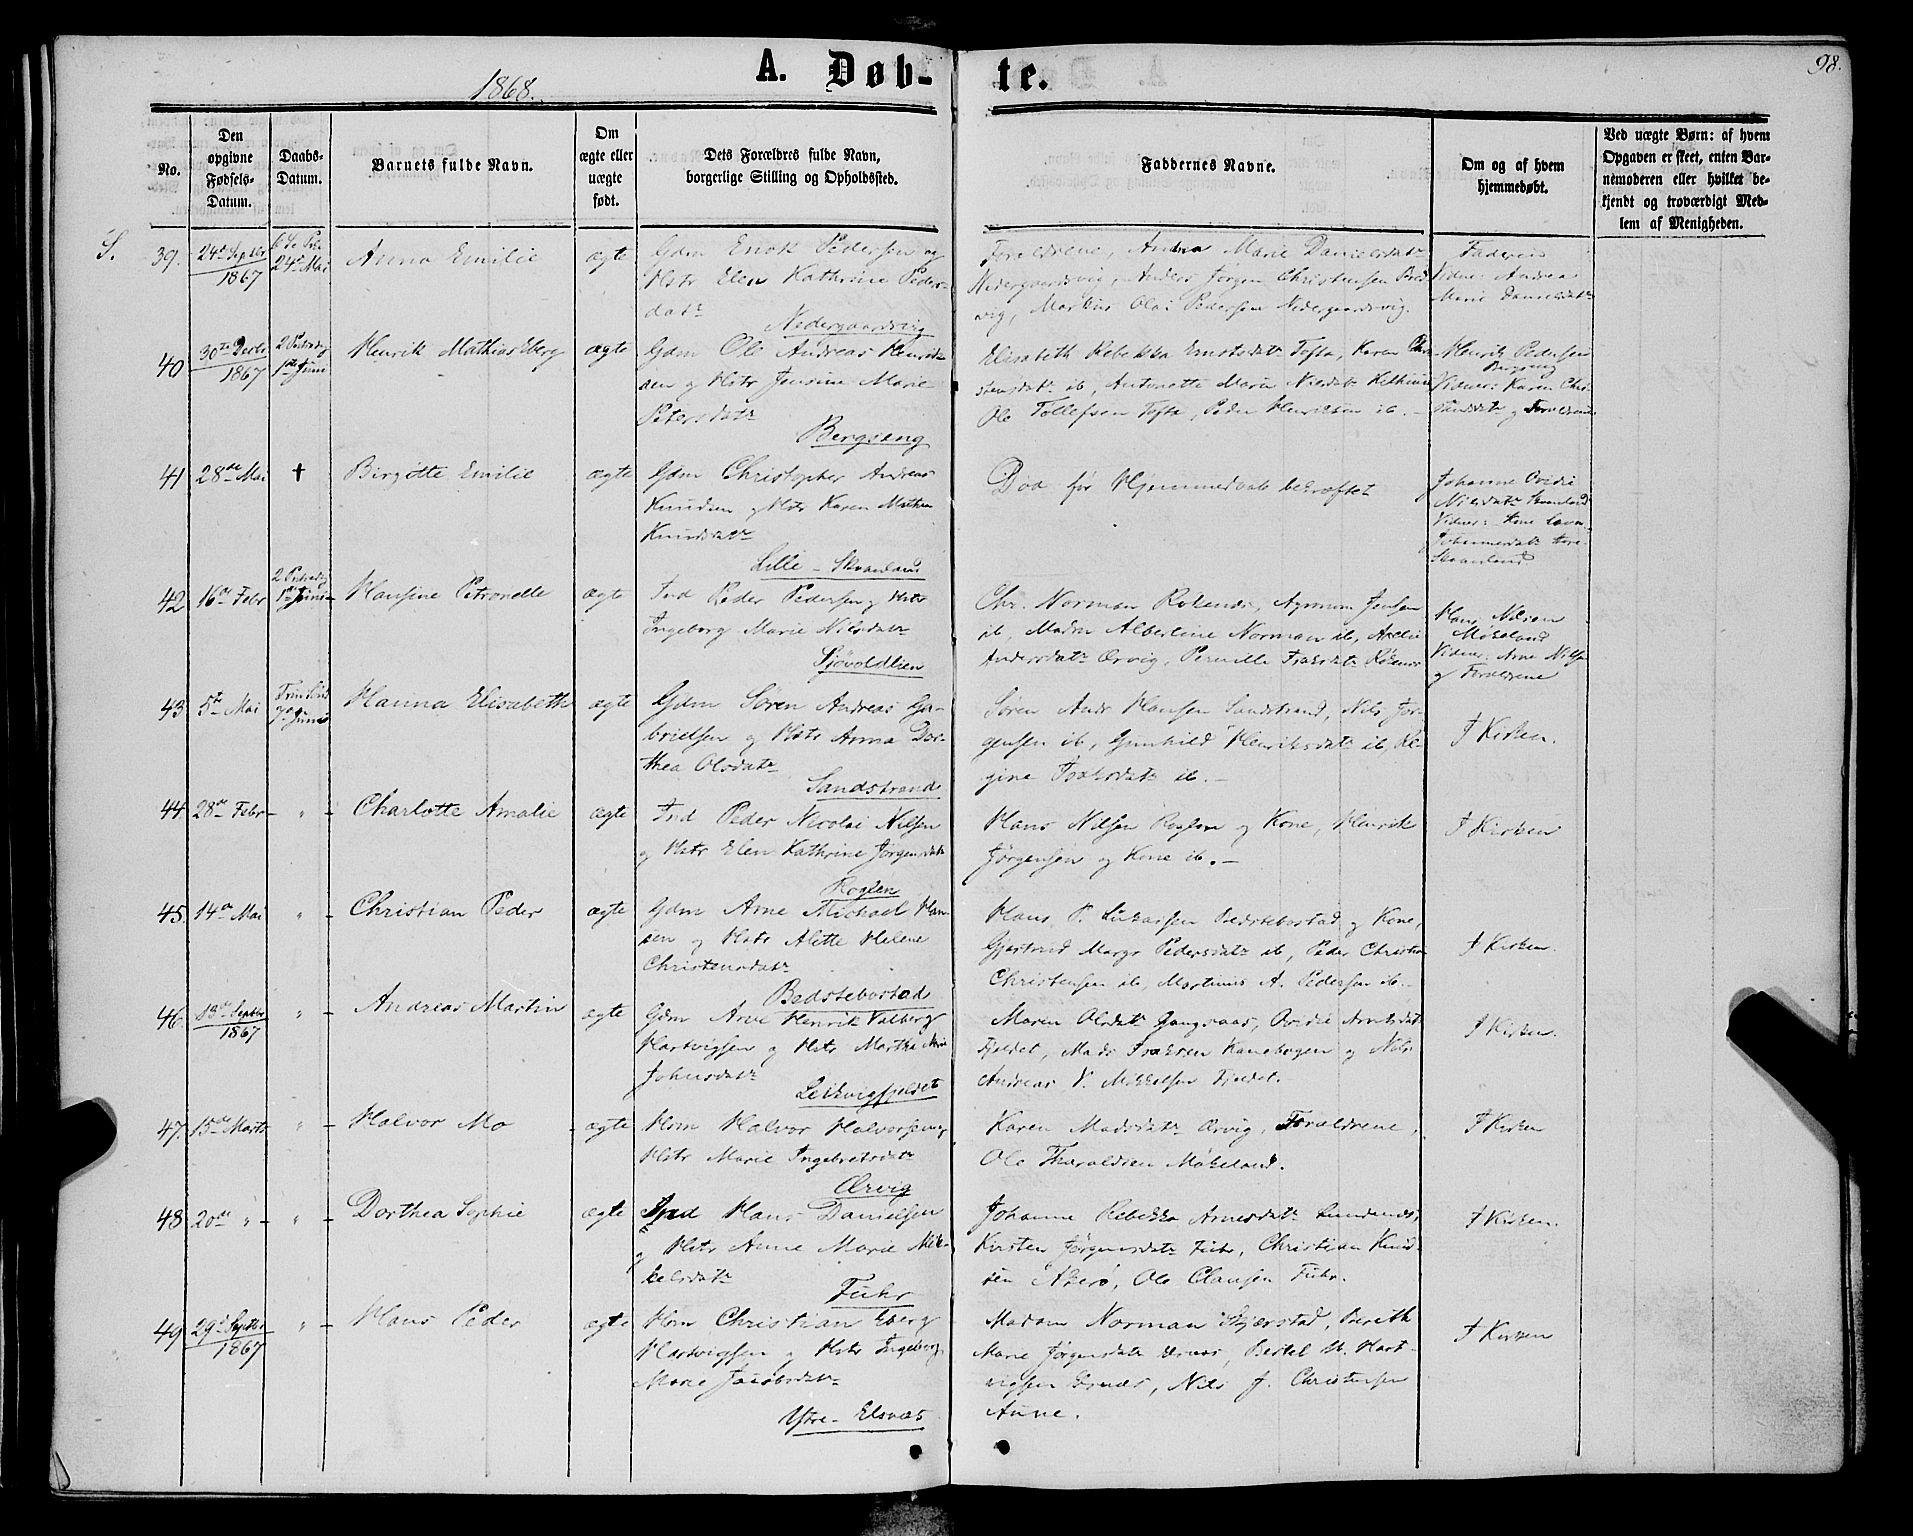 98.
1868.
A. Døb-
te.
No.
Den opgivne Fødsels-Datum.
Daabs-Datum.
Barnets fulde Navn.
Om ægte eller uægte født.
Dets Forældres fulde Navn, borgerlige Stilling og Opholdssted.
Faddernes Navne.
Om og af hvem hjemmedøbt.
Ved uægte Børn: af hvem Opgaven er skeet, enten Barnemoderen eller hvilket bekjendt og troværdigt Medlem af Menigheden.
S.
39. 24de Septbr 1867
24de Mai
Anna Emilie
ægte
Gdm Enok Pedersen og
Hstr Elen Kathrine Peders-
datr
Nedergaardsvig
Forældrene, Andrea Marie Danielsdatr
Nedergaardsvig, Anders Jørgen Christensen
vig, Markus Olai Pedersen Nedergaardsvig.
Faderen
Vidner: Andrea
Marie Danielsdatr
40 30te Decbr 1867
2 Pintsedag
1ste Juni
Henrik Mathias Eberg
ægte
Gdm Ole Andreas Henrik-
sen og Hstr Jensine Marie
Petersdatr
Bergseng
Elisabeth Rebekka Ernstsdatr Tofta, Karen Chri-
stensdatr ib, Antonette Maria Nilsdatr
Ole Tollefsen Tofta, Peder Henriksen ib. -
Henrik Pedersen
Bergseng
Vidner: Karen Chri-
stensdatr og Forældrene
41 28de Mai
†
Birgitte Emilie
ægte
Gdm Christopher Andreas
Knudsen og Hstr Karen Mathea
Knudsdatr
Lille - Skaanland
Død før Hjemmedaab bekræftet
Johanne Ovidie
Nilsdatr Skaanland
Vidner: Ane
Johannesdatr
Skaanland
42 16de Febr
2 Pintsedag
1ste Juni
Hansine Petronelle
ægte
Ind Peder Pedersen og Hstr
Ingeborg Marie Nilsdatr
Sjøvoldlien
Chr. Norman Rokenæs, Jensen
ib, Madm Albertine Norman ib,
Andersdatr Ørvig, Pernille Isaksdatr
Hans Nilsen
Møkeland
Vidner: Arne Nilsen
og Forældrene
43 5te Mai
7de Juni
Hanna Elisabeth
ægte
Gdm Søren Andreas Ga-
brielsen og Hstr Anna Dor-
thea Olsdatr
Sandstrand
Søren Andr Hansen Sandstrand, Nils Jør-
gensen ib, Gunhild Henriksdatr ib, Re-
gine Isaksdatr ib. -
I Kirken.
44. 28de Febr - " -
Charlotte Amalie
ægte
Ind Peder Nicolai Nilsen
og Hstr Elen Kathrine Jørgensdatr
Roglen
Hans Nilsen Roglen og Kone, Henrik
Jørgensen og Kone ib. -
I Kirken
45. 14de Mai " -
Christian Peder
ægte
Gdm Arne Michael Han-
sen og Hstr Alette Helene
Christensdatr
Bedstebostad
Hans P. Lukassen Bedstebostad og Kone,
Gjertrud Margr Pedersdatr ib, Peder Christian
Christensen ib, Martinus A. Pedersen ib. -
I Kirken.
46. 13de Septbr 1867 " -
Andreas Martin
ægte
Gdm Arne Henrik Valberg
Hartvigsen og Hstr Martha Maria
Johnsdatr
Leikvigfjeldet
Maren Olsdatr Gangsaas, Ovidie Arntsdatr
Fjeldet, Mads Isaksen Kanebogen og Nils
Andreas V. Mikkelsen Fjeldet. -
I Kirken.
47. 15de Marts " -
Halvor Mo
- ægte
Hm Halvor Halvorsen og
Hstr Marie Ingebretsdatr
Ørvig
Karen Madsdatr Ørvig, Forældrene,
Ole Tharaldsen Møkeland.
I Kirken
48 20de " - " -
Dorthea Sophie
ægte
Ind Hans Danielsen
og Hstr Anne Marie Mik-
kelsdatr
Fuhr
Johanne Rebekka Arnesdatr Lundenæs,
Kirsten Jørgensdatr Fuhr, Christian Knud-
sen Akerø, Ole Clausen Fuhr.
I Kirken.
49 29de Septbr 1867 " -
Hans Peder
ægte
Hm Christian Eberg
Hartvigsen og Hstr Ingeborg
Marie Jacobsdatr
Ytre - Elsnæs
Madam Norman Skjærstad, Berith
Marie Jørgensdatr Elsnæs, Bertel M. Hart-
vigsen Elsnæs, Nils J. Christensen
Aune.
I Kirken